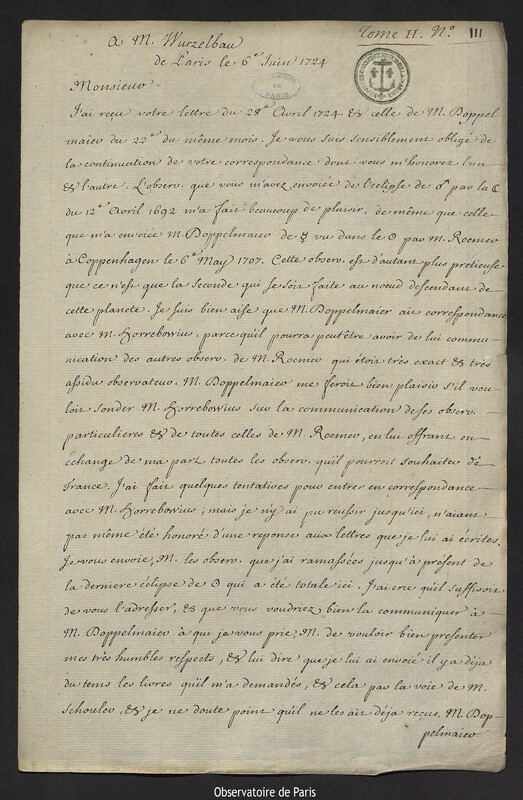 Tome II. N.º III
A M. Wurzelbau
de Paris le 6.e Juin 1724
OBSERVATOIRE DE PARIS
Monsieur
J'ai reçu votre lettre du 28.e Avril 1724 & celle de M. Doppel
maier du 22.e du même mois. Je vous suis sensiblement obligé de
la continuation de votre correspondance dont vous m'honorez l'un
& l'autre. L'observ. que vous m'avez envoiée de l'eclipse de ♂ par la ☾
du 12.e Avril 1692 m'a fait beaucoup de plaisir, de même que celle
que m'a envoiée M. Doppelmaier de ☿ vu dans le ☉ par M. Roemer
à Coppenhagen le 6.e May 1707. Cette observ. est d'autant plus pretieuse
que ce n'est que la seconde qui se soit faite au noeud descendant de
cette planete. Je suis bien aise que M. Doppelmaier ait correspondance
avec M. Horrebowius, parce qu'il pourra peut être avoir de lui commu-
nication des autres observ. de M. Roemer qui étoit très exact & très
assidu observateur. M. Doppelmaier me feroit bien plaisir s'il vou
loit sonder M. Horrebowius sur la communication de ses observ.
particulieres & de toutes celles de M. Roemer, en lui offrant en
échange de ma part toutes les observ. qu'il pourroit souhaiter de
France. J'ai fait quelques tentatives pour entrer en correspondance
avec M. Horrebowius ; mais je n'y ai pu reussir jusqu'ici, n'aiant
pas même été honoré d'une reponse aux lettres que je lui ai écrites.
Je vous envoie, M. les observ. que j'ai ramassées jusqu'à présent de
la derniere éclipse de ☉ qui a été totale ici. J'ai cru qu'il suffisoit
de vous l'adresser, & que vous voudriez bien la communiquer à
M. Doppelmaier à qui je vous prie, M. de vouloir bien presenter
mes très humbles respects, & lui dire que je lui ai envoié il y a déja
du tems les livres qu'il m'a demandés, & cela par la voie de M.
Schouler, & je ne doute point qu'il ne les ait déja reçus. M. Dop-
pelmaier
Observatoire de Paris